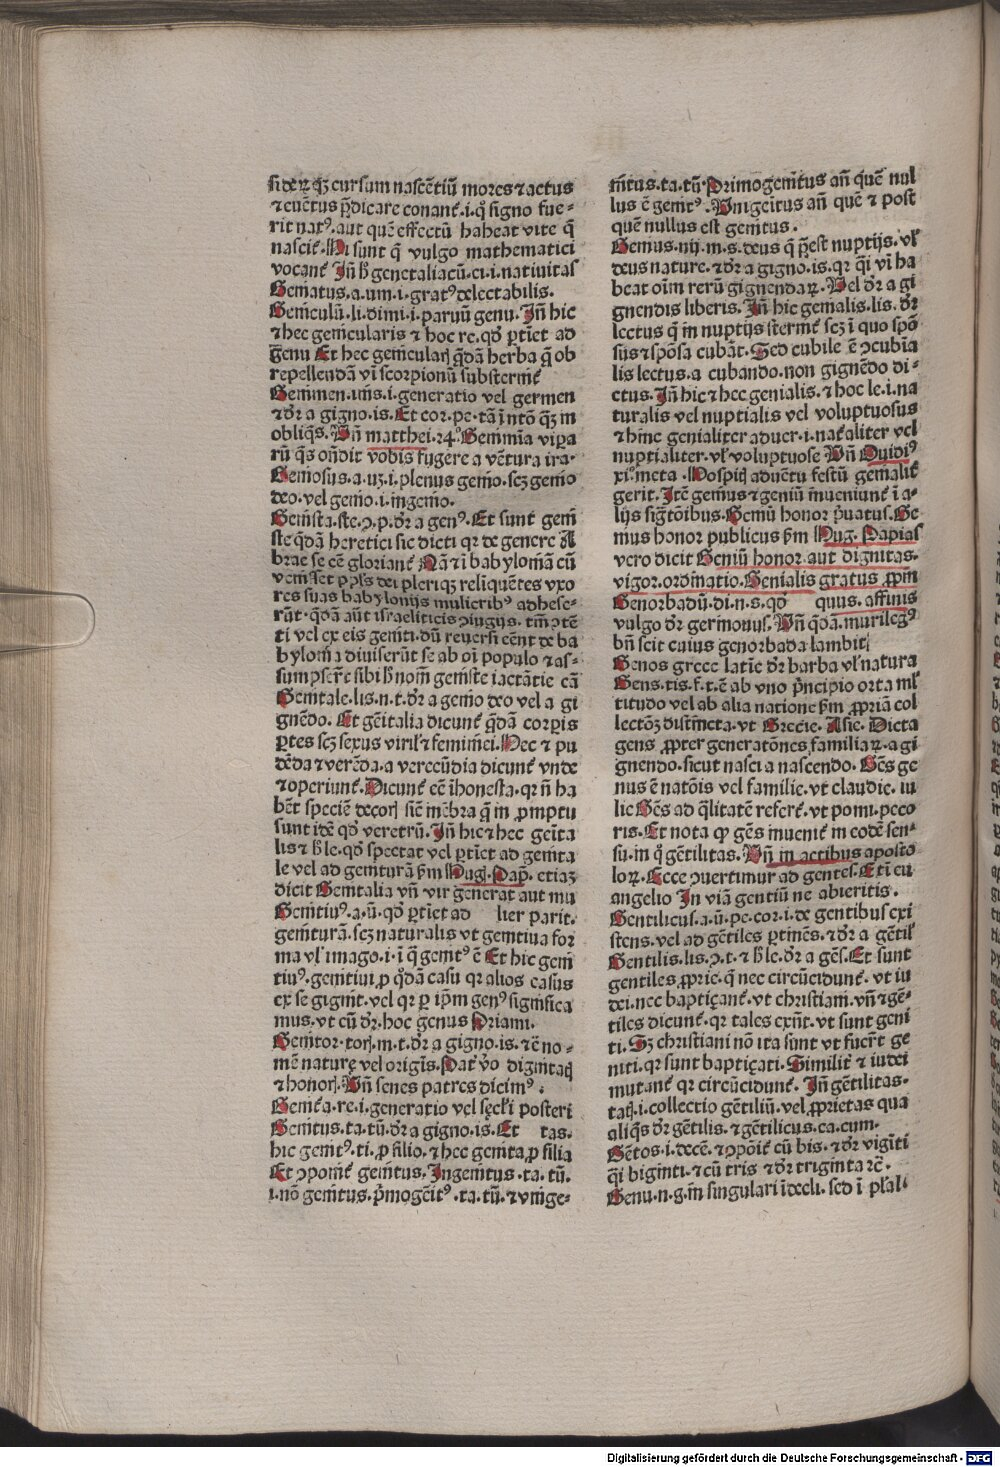 siderꝝ qꝫ cursum nascẽtiũ mores ⁊ actus
⁊ euẽtus p̃dicare conant᷑.i.q̊ signo fue⸗
rit natꝰ.aut quẽ effectũ habeat vite q̃
nascit᷑.Hi sunt q̃ vulgo mathematici
vocant᷑ Iñ h̾ genetaliacũ.ci.i.natiuitas
Gematus.a.um.i.gratꝰ delectabilis.
Geniculũ.li.dimi.i.paruũ genu.Iñ hic
⁊ hec genicularis ⁊ hoc re.qd̾ ꝑtiet ad
genu Et hec geniculari̾ q̃dã herba q̃ ob
repellendã vĩ scorpionũ substernit᷑
Genimen.nis.i.generatio vel germen
⁊ dr̃ a gigno.is.Et cor.pe.tã ĩ ntõ qꝫ in
obliq̃s.Vñ matthei.24.Genimĩa vipa
rũ q̃s oñdit vobis fugere a vẽtura ira.
Geniosus.a.uꝫ.i.plenus genio.scꝫ genio
deo.vel genio.i.ingenio.
Genista.ste.ꝯ.p.dr̃ a genꝰ.Et sunt geni
ste q̃dã heretici sic dicti qr de genere A
brae se cẽ gloriant᷑ Nã ⁊ ĩ babyloniã cũ
venisset ppl̾s dei pleriqꝫ reliquẽtes vxo
res suas babylonijs mulieribꝰ adhese⸗
rũt.q̃dã aũt israeliticis ꝯiugijs.tm̃ ꝯtẽ
ti vel ex eis geniti.dũ reuersi eẽnt de ba
bylonia diuiserũt se ab oĩ populo ⁊ as⸗
sumpserẽ sibi h̾ nom̃ geniste iactãtie cã
Genitale.lis.n.t.dr̃ a genio deo vel a gi
gnẽdo.Et gẽitalia dicunt᷑ q̃dã corꝑis
ꝑtes scꝫ sexus viril᷑ ⁊ feminei.Nec ⁊ pu
dẽda ⁊ verẽda.a verecũdia dicunt᷑ vnde
⁊ operiunt᷑.Dicunt᷑ eẽ ĩhonesta.qr ñ ha
bẽt speciẽ decori̾ sic̃ mẽbra q̃ in promptu
sunt idẽ qd̾ veretrũ.Iñ hic ⁊ hec geĩta
lis ⁊ h̾ le.qd̾ spectat vel ꝑtiet ad genita
le vel ad geniturã s̾m Hug̾.Pap̾.etiaꝫ
dicit Genitalia vñ vir generat aut mu
Genitiuꝰ.a.ũ.qd̾ ꝑtiet ad lier parit.
geniturã.scꝫ naturalis vt genitiua for
ma vl᷑ imago.i.ĩ q̃ genitꝰ ẽ Et hic geni
tiuꝰ.genitiui ꝓ q̃dã casu qr alios casus
ex se gignit.vel qr ꝑ ip̃m genꝰ significa
mus.vt cũ dr̃.hoc genus Priami.
Genitor.tori̾.m.t.dr̃ a gigno.is.⁊ ẽ no⸗
mẽ naturę vel origĩs.Pat᷑ ṽo dignitaq̃
⁊ honori̾.Vñ senes patres dicimꝰ.
Genit᷑a.re.i.generatio vel sęcl̾i posteri
Genitus.ta.tũ.dr̃ a gigno.is.Et tas.
hic genitꝰ.ti.ꝓ filio.⁊ hec genita ꝓ filia
Et ꝯponit᷑ genitus.Ingenitus.ta.tũ.
.i.nõ genitus.p̃mogẽitꝰ.ta.tũ.⁊ vnige⸗
nitus.ta.tũ.Primogenitus añ quẽ nul
lus ẽ genitꝰ.Vnigeitus añ quẽ ⁊ post
quẽ nullus est genitus.
Genius.nij.m.s.deus q̃ p̃est nuptijs.vl᷑
deus nature.⁊ dr̃ a gigno.is.qr q̃i vĩ ha
beat oĩm rerũ gignendaꝝ.Vel dr̃ a gi
gnendis liberis.Iñ hic genialis.lis.dr̃
lectus q̃ in nuptijs sternit᷑ scꝫ ĩ quo spõ
sus ⁊ spõsa cubãt.Sed cubile ẽ ꝯcubĩa
lis lectus.a cubando.non gignẽdo di⸗
ctus.Iñ hic ⁊ hec genialis.⁊ hoc le.i.na
turalis vel nuptialis vel voluptuosus
⁊ hinc genialiter aduer.i.nat᷑aliter vel
nuptialiter.vl᷑ voluptuose Vñ Ouidiꝰ
xi.meta.Hospitij aduẽtu festũ genialit᷑
gerit.Itẽ genius ⁊ geniũ inueniunt᷑ ĩ a⸗
lijs sig̃tõibus.Geniũ honor p̃uatus.Ge
nius honor publicus s̾m Hug.Papias
vero dicit Geniũ honor aut dignitas.
vigor.ordinatio.Genialis gratus ꝓpin
Genorbadũ.di.n.s.qd̾ quus.affinis
vulgo dr̃ germonus.Vñ q̃dã.murilegꝰ
bñ scit cuius genorbada lambit
Genos grece latĩe dr̃ barba vl᷑ natura
Gens.tis.f.t.ẽ ab vno p̃ncipio orta ml᷑
titudo vel ab alia natione s̾m ꝓpriã col
lectõꝫ distincta.vt Grecie.Asie.Dicta
gens ꝓpter generatõnes familiaꝝ.a gi
gnendo.sicut nasci a nascendo.Gẽs ge
nus ẽ natõis vel familie.vt claudie.iu
lie Gẽs ad q̃litatẽ refert᷑.vt pomi.peco
ris.Et nota ꝙ gẽs inuenit᷑ in eodẽ sen⸗
su.in q̊ gẽtilitas.Vñ in actibus aposto
loꝝ.Ecce ꝯuertimur ad gentes.Et ĩ eu
angelio In viã gentiũ ne abieritis.
Gentilicus.a.ũ.pe.cor.i.de gentibus exi
stens.vel ad gẽtiles ꝑtinẽs.⁊ dr̃ a gẽtil᷑
Gentilis.lis.ꝯ.t.⁊ h̾ le.dr̃ a gẽs.Et sunt
gentiles ꝓprie.q̃ nec circũcidunt᷑.vt iu
dei.nec baptiçant᷑.vt christiani.vñ ⁊ gẽ⸗
tiles dicunt᷑.qr tales exñt.vt sunt geni
ti.Sꝫ christiani nõ ita sunt vt fuer̃t ge
niti.qr sunt baptiçati.Similit᷑ ⁊ iudei
mutant᷑ qr circũcidunt᷑.Iñ gẽtilitas.
tati̾.i.collectio gẽtiliũ.vel ꝓprietas qua
aliq̃s dr̃ gẽtilis.⁊ gẽtilicus.ca.cum.
Gẽtos.i.decẽ.⁊ ꝯpõit᷑ cũ bis.⁊ dr̃ vigĩti
q̃i biginti.⁊ cũ tris ⁊ dr̃ triginta rc̃.
Genu.n.g.in singulari ĩdecli.sed ĩ pl᷑ali
Digitalisierung gefördert durch die Deutsche Forschungsgemeinschaft - DFG